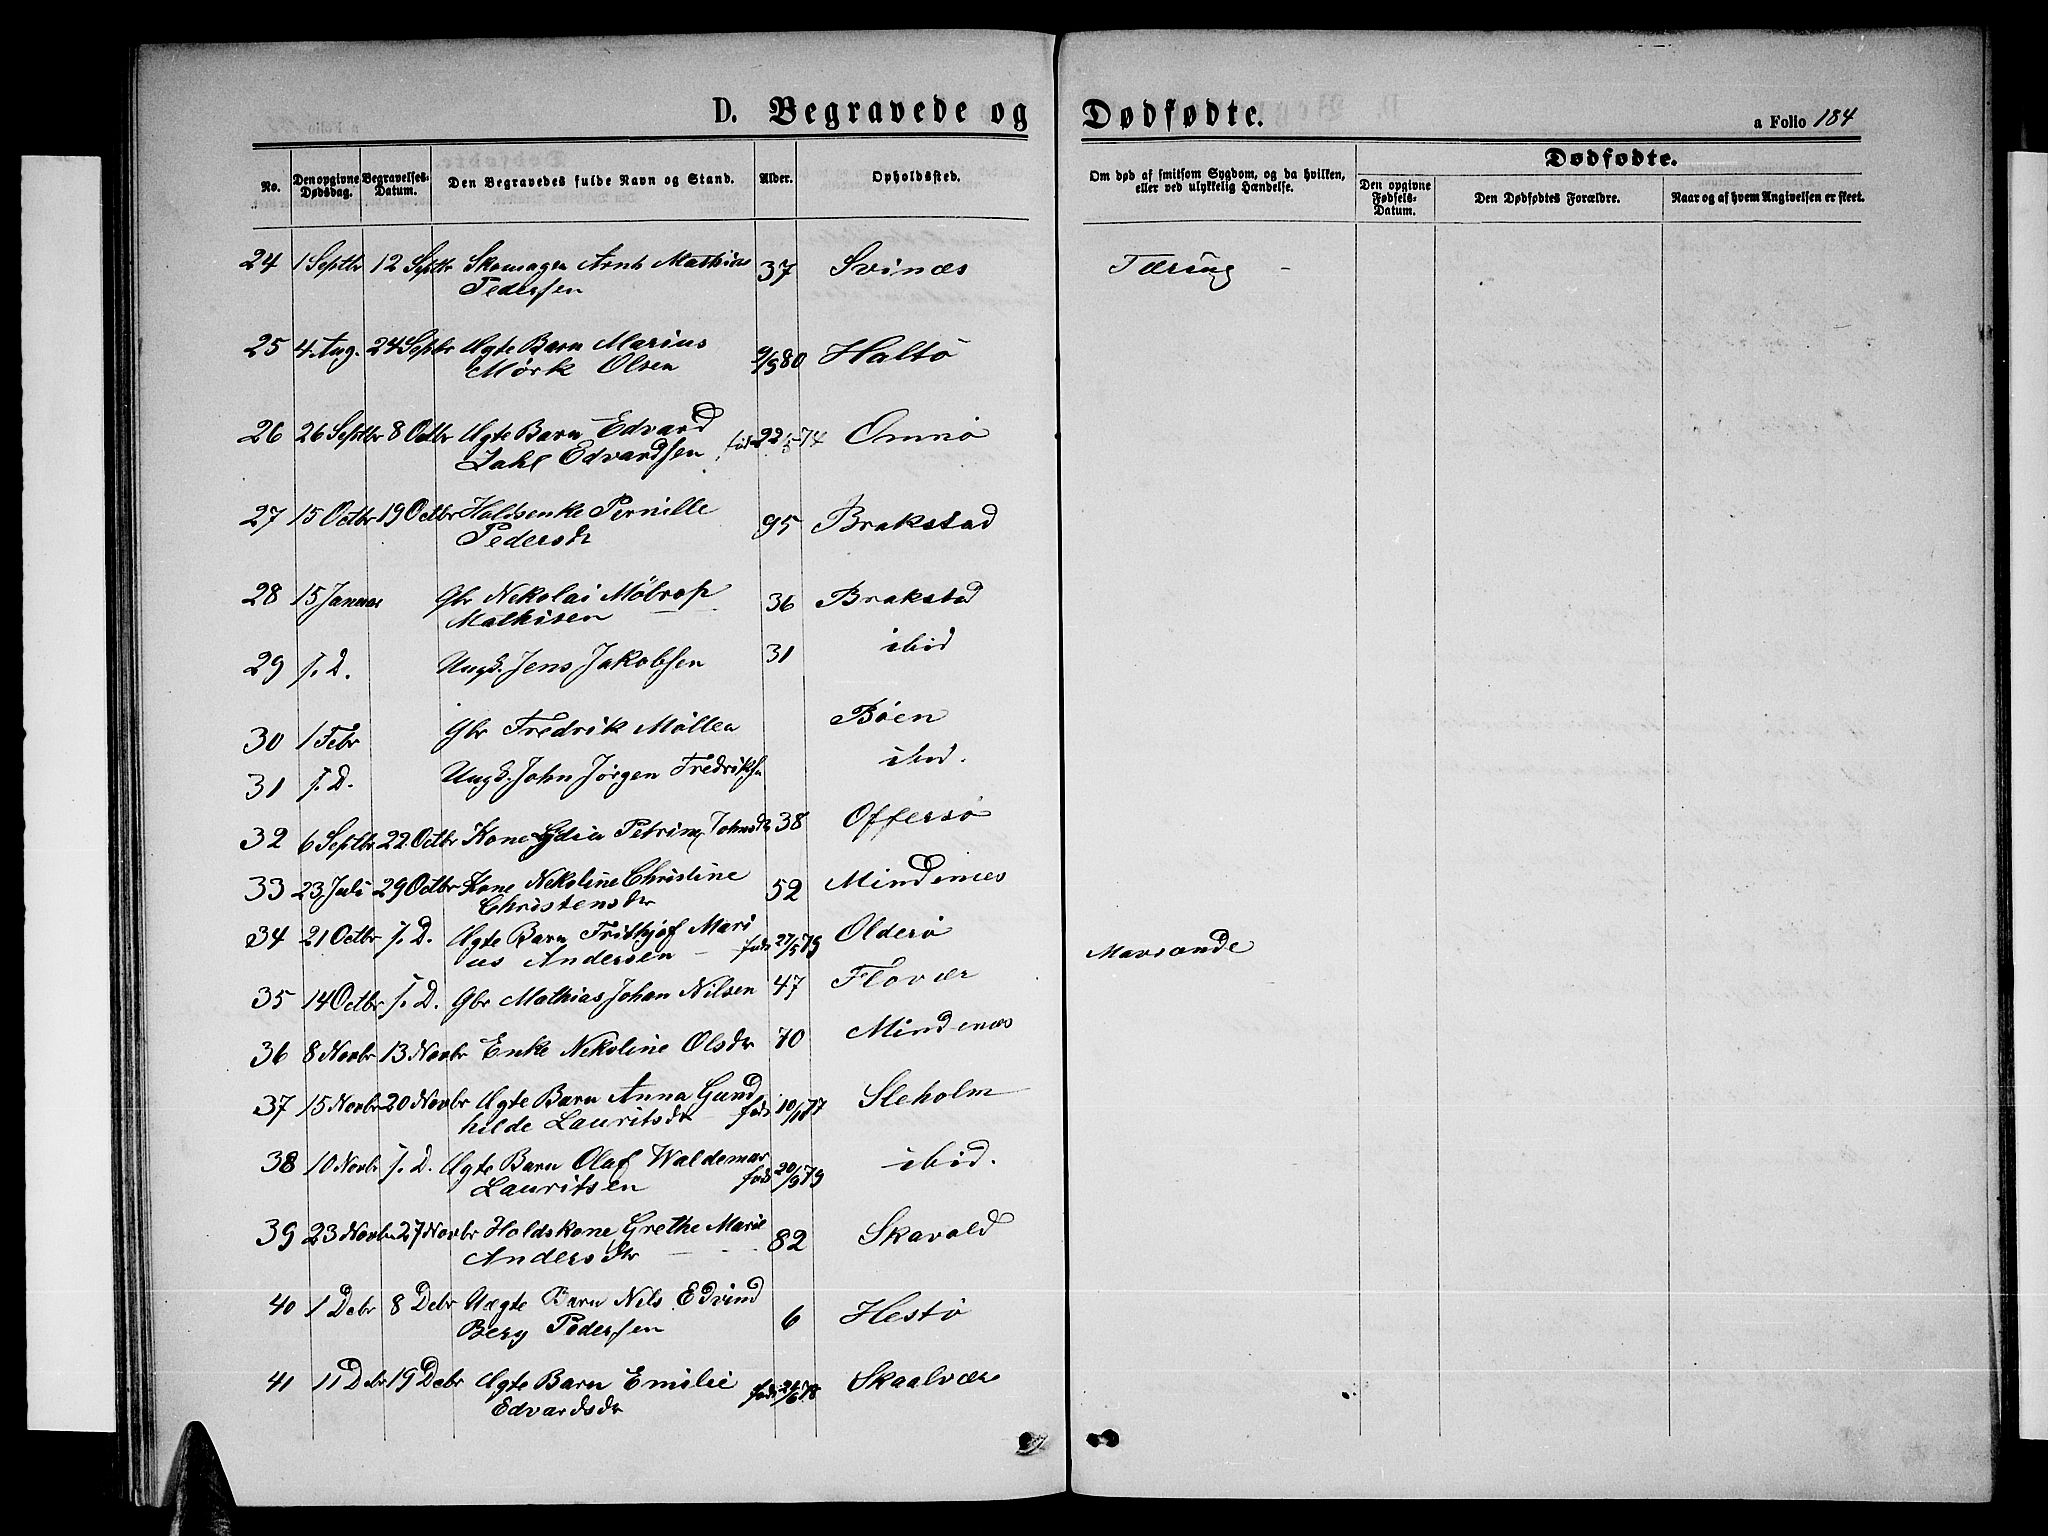 D. Begravede og Dødfødte. a Folio 184
No. Den opgivne Dødsdag. Begravelses-Datum. Den Begravedes fulde Navn og Stand. Alder. Opholdssted. Om død af smitsom Sygdom, og da hvilken, eller ved ulykkelig Hændelse. Dødfødte. Den opgivne Fødsels-Datum. Den Dødfødtes Forældre. Naar og af hvem Angivelsen er skeet.
24 1 Septbr 12 Septbr Skomager Arnt Mathias 37 Svinæs Tæring
Pedersen
25 4 Aug. 24 Septbr Ægte Barn Marius 4/3 80 Haltö
Mørk Olsen
26 26 Septbr 8 Octbr Ægte Barn Edvard 74 Omnö
Edvardsen
27 15 Octbr 19 Octbr Holdsenke Pernille 95 Brakstad
Pedersdr
28 15 Januar Gbr Nekolai Möbrop 36 Brakstad
Mathisen
29 s. D. Ungk. Jens Jakobsen 31 ibid
30 1 Febr Gbr Fredrik Möller Böen
31 s. D. Ungk. John Jörgen Fredriksen ibid.
32 6 Septbr 22 Octbr Kone Lydia Petrine Johnsdr 38 Offersö
33 23 Juli 29 Octbr Kone Nekoline Christine 52 Mindenæs
Christensdr
34 21 Octbr s. D. Ægte Barn Frithjof Mari födt 27/5 79 Olderö Mavsonde
us Andersen
35 14 Octbr s. D. Gbr Mathias Johan Nilsen 47 Flovær
36 8 Novbr 13 Novbr Enke Nekoline Olsdr 70 Mindenæs
37 15 Novbr 20 Novbr Ægte Barn Anna Gund födt 10/1 77 Steholm
hilde Lauritsdr
38 10 Novbr s. D. Ægte Barn Olaf Waldemar födt 20/9 79 ibid.
Lauritsen
39 23 Novbr 27 Novbr Holdskone Grethe Marie 82 Skavold
Andersdr
40 1 Debr 8 Debr Uægte Barn Nils Edvind 6 Hestö
Berg Pedersen
41 11 Debr 19 Debr Ægte Barn Emilie födt 24/6 78 Skaalvær
Edvardsdr